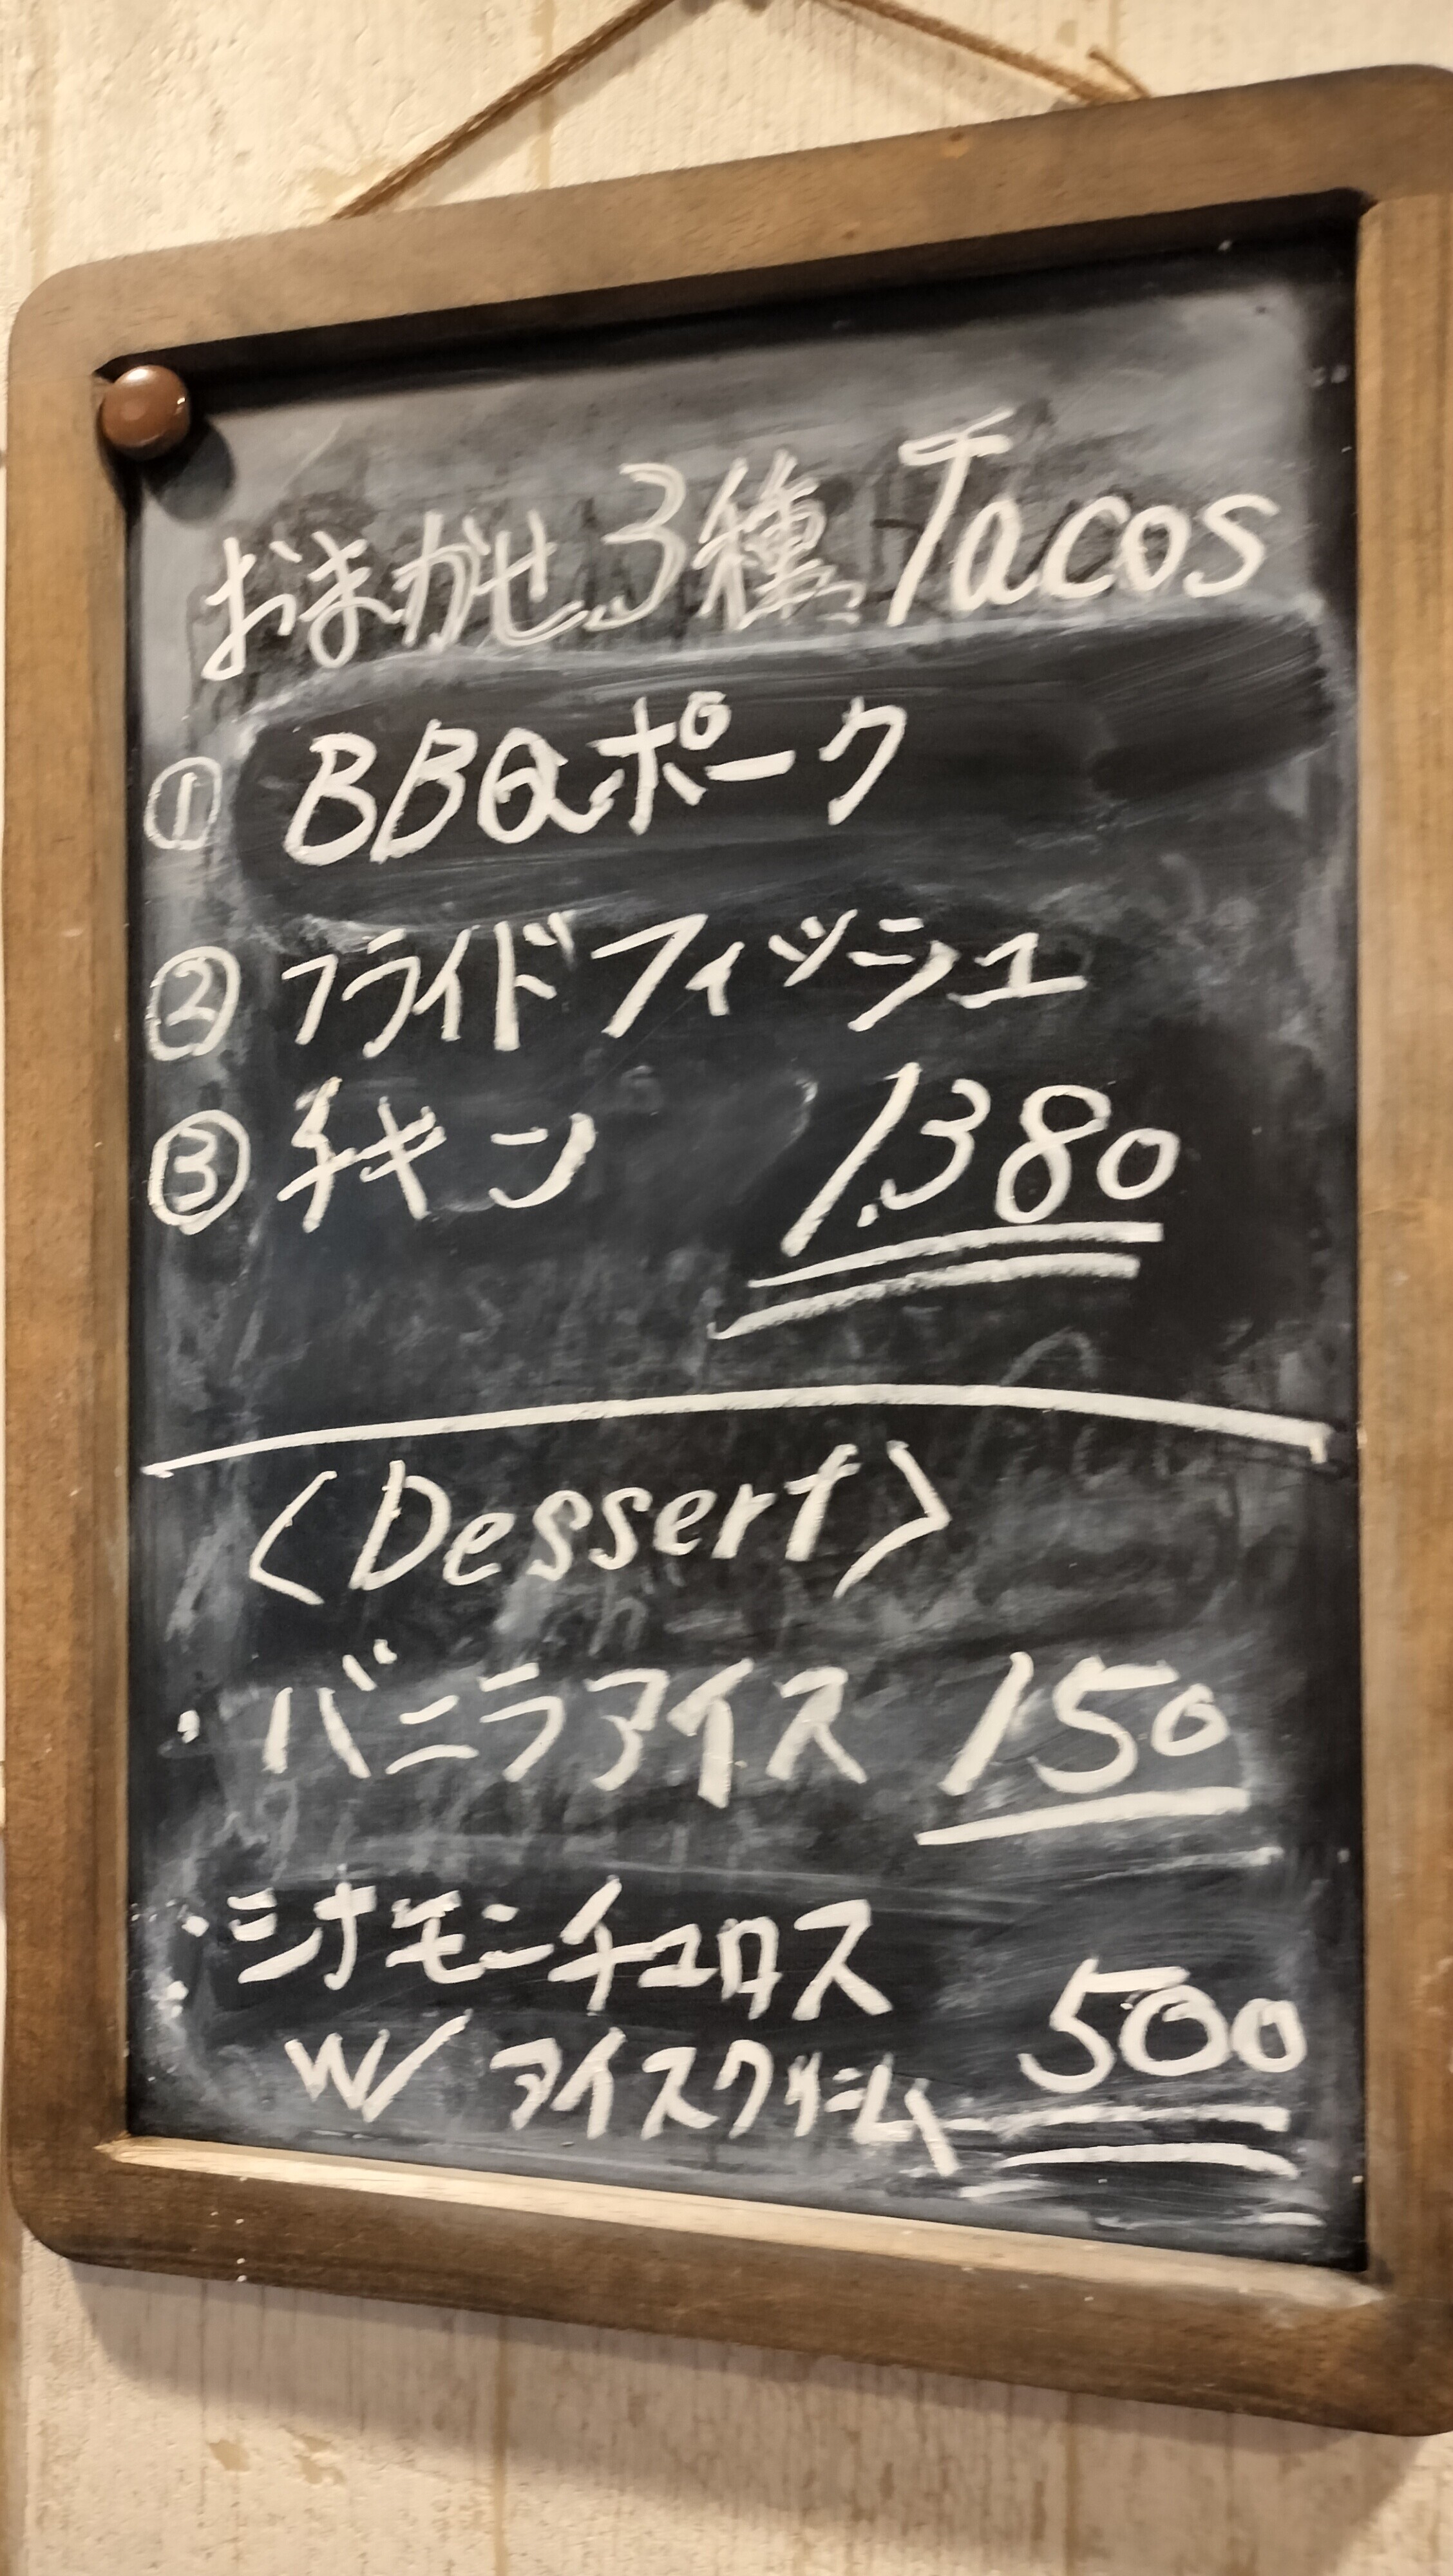 おまかせ3種 Tacos
① BBQポーク
② フライドフィッシュ
③ チキン 1.380
〈Dessert〉
・バニラアイス 150
・シナモンチュロス
W/ アイスクリーム 500